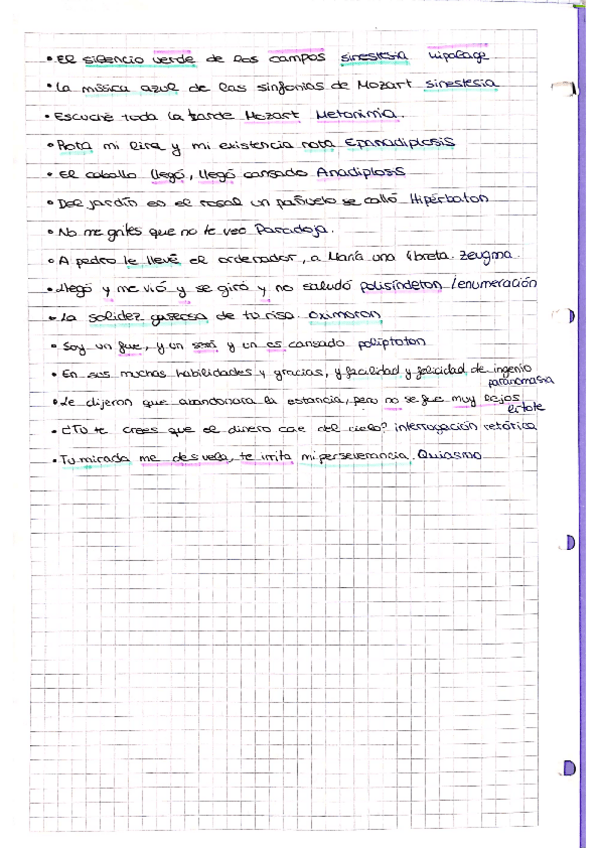 • El silencio verde de los campos sinestesia hipálage
• La música azul de las sinfonías de Mozart sinestesia
• Escuché toda la tarde Mozart Metonimia.
• Rota mi lira y mi existencia rota Epanadiplosis
• El caballo llegó, llegó cansado Anadiplosis
• Del jardín en el rosal un pañuelo se calló Hipérbaton
• No me grites que no te veo Paradoja.
• A pedro le llevé el ordenador, a María una libreta. Zeugma.
• Llegó y me vió y se giró y no saludó polisíndeton /enumeración
• La solidez gaseosa de tu risa. oximoron
• Soy un fue, y un será y un es cansado poliptoton
• En sus muchas habilidades y gracias, y facilidad y felicidad de ingenio
paranomasia
• Le dijeron que abandonara la estancia, pero no se fue muy lejos
litote
• ¿Tú te crees que el dinero cae del cielo? interrogación retórica
• Tu mirada me desvela, te irrita mi perseverancia. Quiasmo